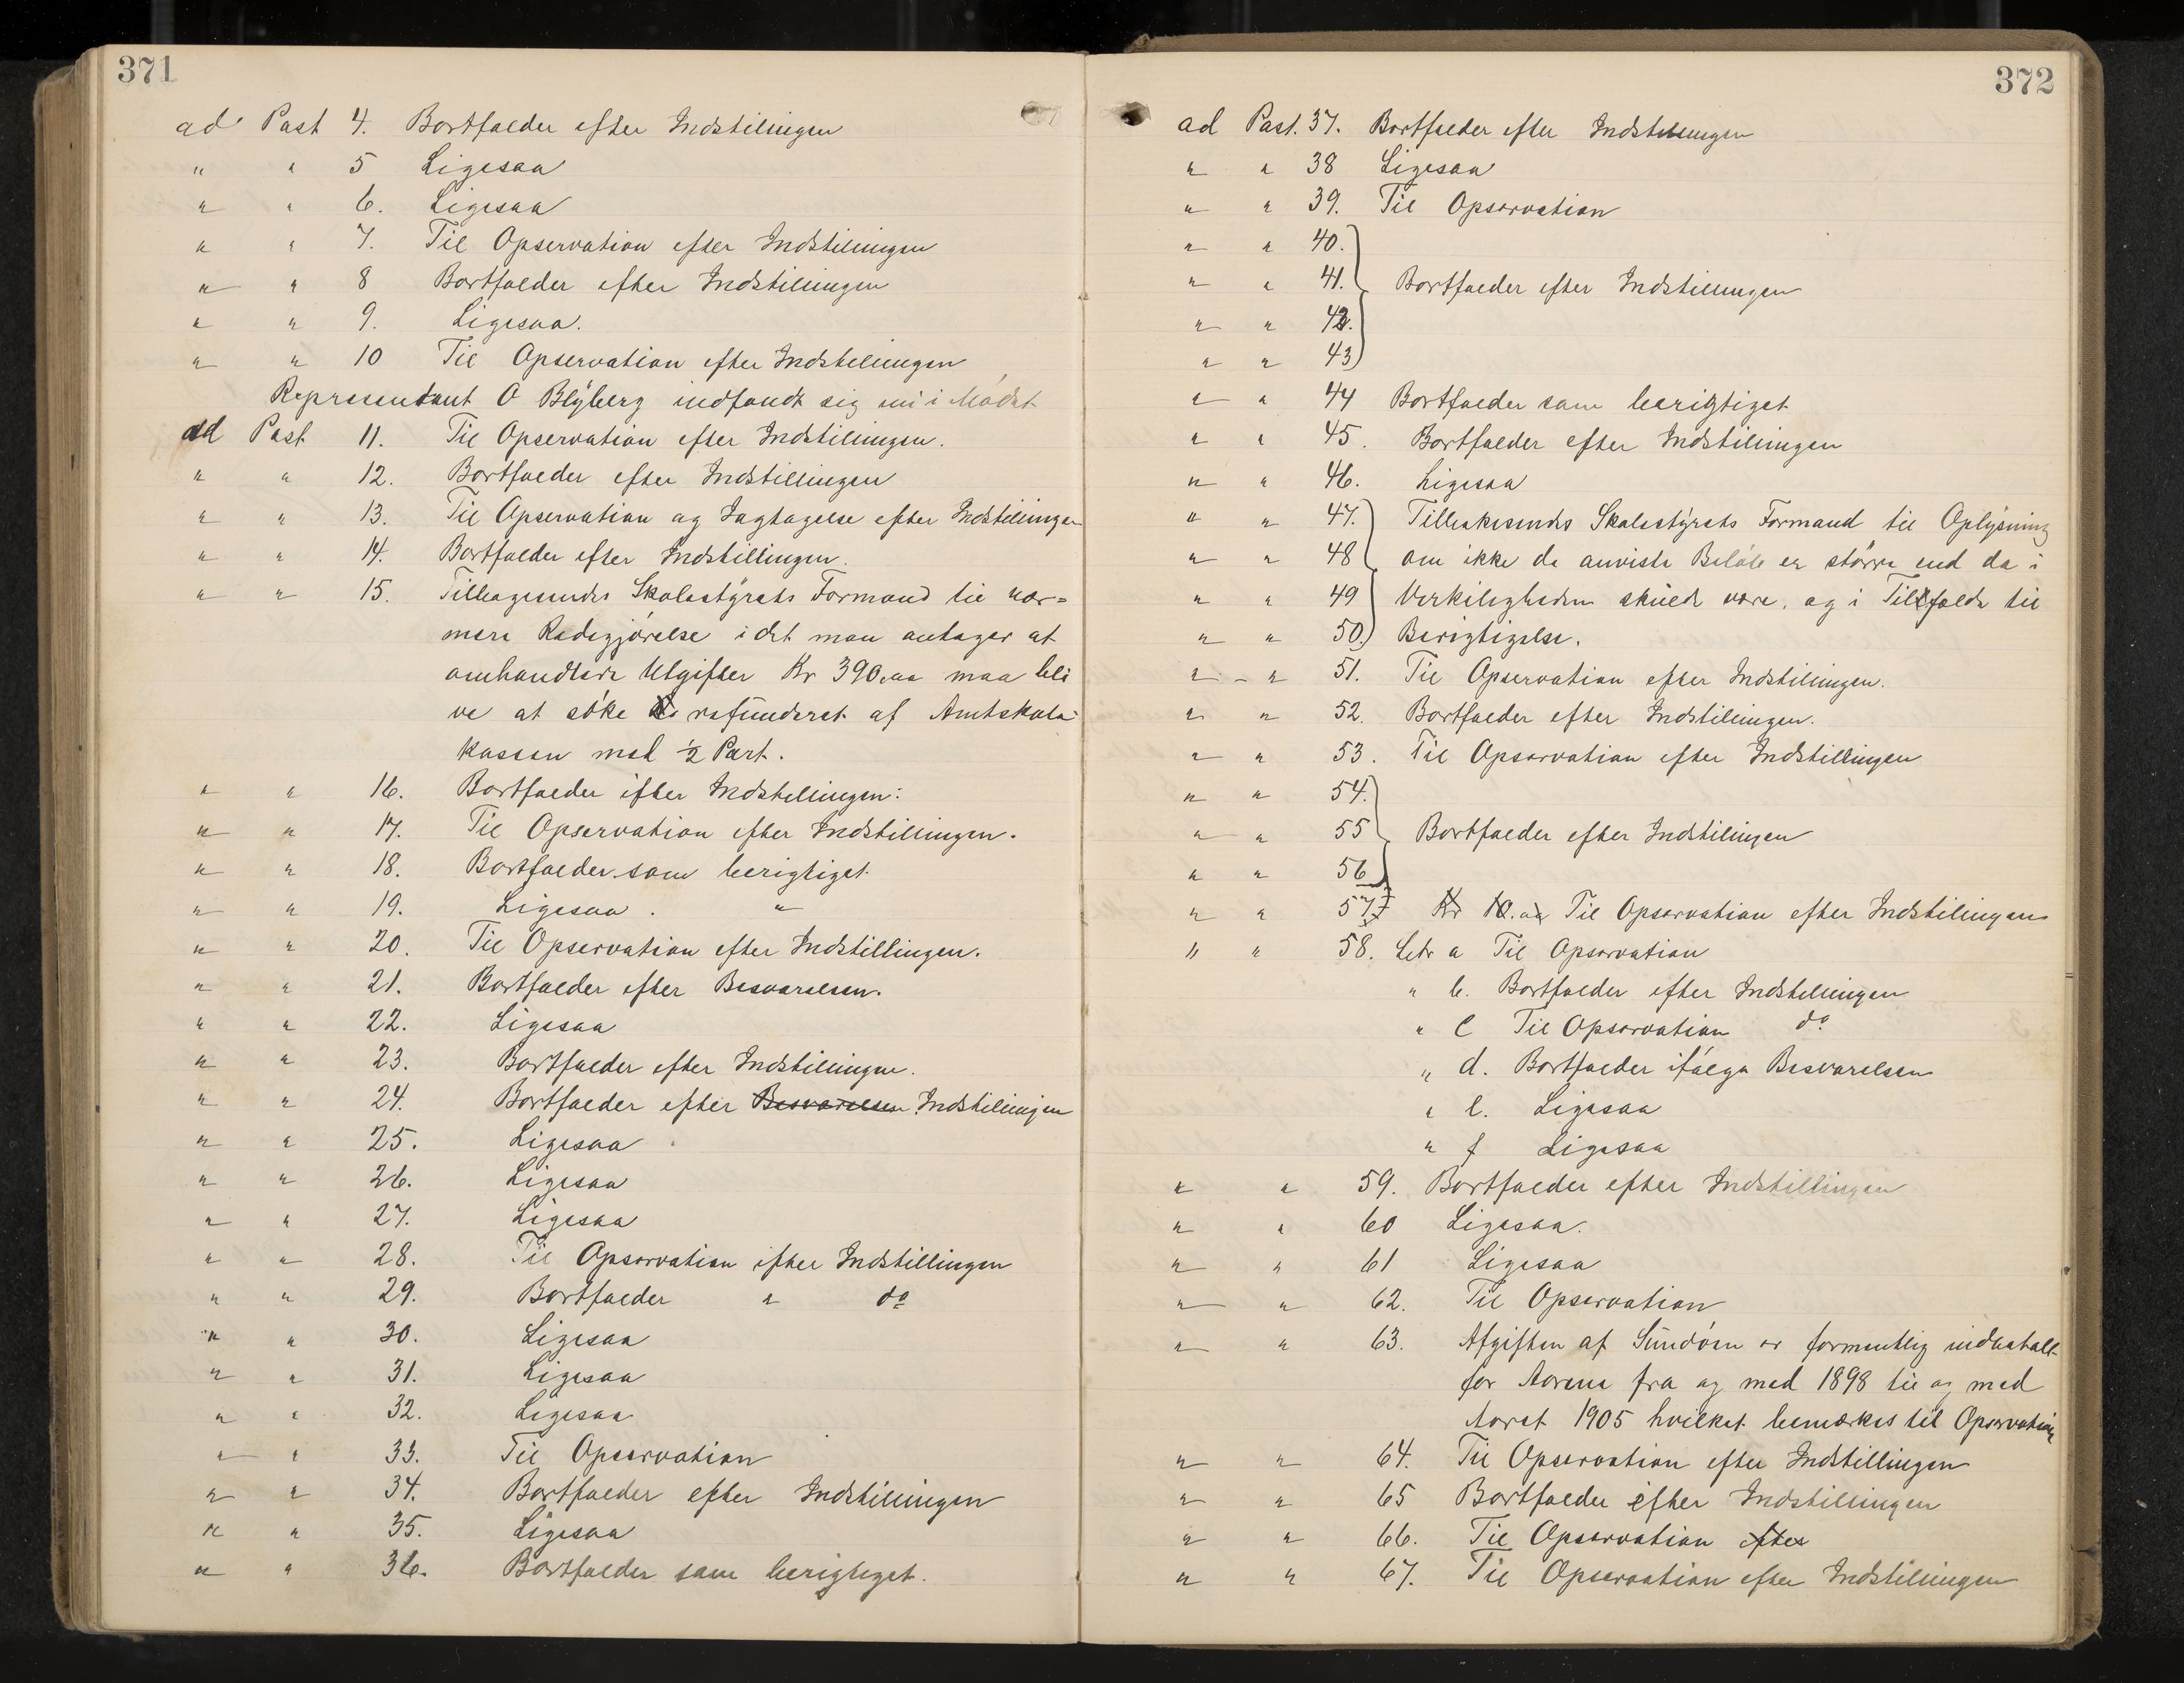 371
ad Post 4. Bortfalder efter Indstilingen
" " 5 Ligesaa
" " 6. Ligesaa
" " 7. Til Opservation efter Indstillingen
" " 8 Bortfalder efter Indstillingen
" " 9. Ligesaa.
" " 10 Til Opservation efter Indstillingen
Representant O Blÿberg indfandt sig nu i Mødet
ad Post 11. Til Opservation efter Indstillingen.
" " 12. Bortfalder efter Indstillingen
" " 13. Til Opservation og Iagtagelse efter Indstillingen
" " 14. Bortfalder efter Indstillingen.
" " 15. Tilbagesendes Skolestÿrets Formand til nær=
mere Redegjørelse i det man antager at
omhandlede Utgifter Kr 390,00 maa bli
ve at søke refunderet af Amtskole
kassen med ½ Part.
" " 16. Bortfalder efter Indstillingen.
" " 17. Til Opservation efter Indstillingen.
" " 18. Bortfalder som berigtiget.
" " 19. Ligesaa. "
" " 20. Til Opservation efter Indstillingen.
" " 21. Bortfalder efter Besvarelsen.
" " 22. Ligesaa
" " 23. Bortfalder efter Indstillingen.
" " 24. Bortfalder efter Besvarelsen Indstillingen
" " 25. Ligesaa
" " 26. Ligesaa
" " 27. Ligesaa
" " 28. Til Opservation efter Indstillingen
" " 29. Bortfalder " do
" " 30. Ligesaa
" " 31. Ligesaa
" " 32. Ligesaa
" " 33. Til Opservation
" " 34. Bortfalder efter Indstillingen
" " 35. Ligesaa
" " 36. Bortfalder som berigtiget.
372
ad Post. 37. Bortfalder efter Indstillingen
" " 38 Ligesaa
" " 39. Til Opservation
" " 40.
" " 41. Bortfalder efter Indstillingen
" " 42.
" " 43
" " 44 Bortfalder som berigtiget
" " 45. Bortfalder efter Indstillingen
" " 46. Ligesaa
" " 47. Tilbakesendes Skolestÿrets Formand til Oplÿsning
" " 48 om ikke de anviste Beløb er større end de i
" " 49 Verkeligheden skulde være, og i Tilfelde til
" " 50. Berigtigelse.
" - " 51. Til Opservation efter Indstillingen.
" " 52. Bortfalder efter Indstillingen.
" " 53. Til Opservation efter Indstillingen
" " 54.
" " 55 Bortfalder efter Indstilingen
" " 56
" " 57 Kr 10.00 Til Opservation efter Indstilingen
" " 58. Litr a Til Opservation
" b. Bortfalder efter Indstillingen
" c Til Opservation do
" d. Bortfalder ifølge Besvarelsen
" e. Ligesaa
" f Ligesaa
" " 59. Bortfalder efter Indstillingen
" " 60 Ligesaa.
" " 61 Ligesaa
" " 62. Til Opservation
" " 63. Afgiften af Sundøen er formentlig indbetalt
for Aarene fra og med 1898 til og med
Aaret 1905 hvilket bemærkes til Opservation
" " 64. Til Opservation efter Indstillingen
" " 65 Bortfalder efter Indstillingen
" " 66. Til Opservation efter
" " 67. Til Opservation efter Indstillingen